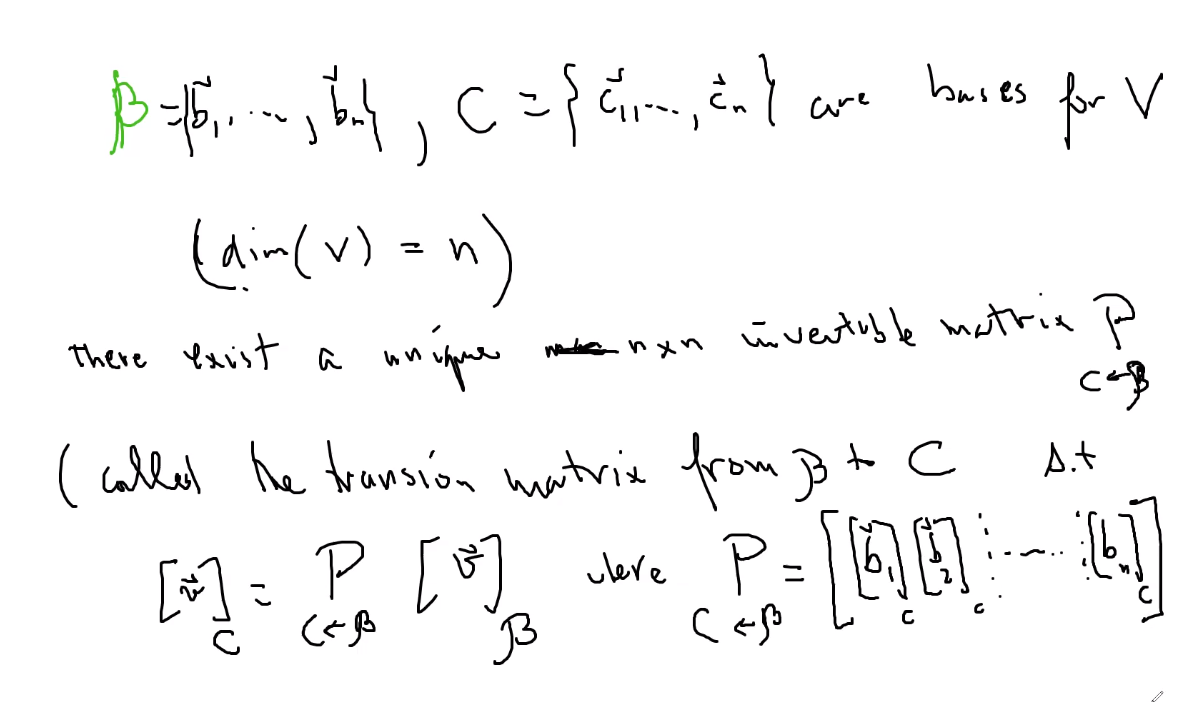 β = {b⃗₁, ..., b⃗ₙ}, C = {c⃗₁, ..., c⃗ₙ} are bases for V
(dim(V) = n)
there exist a unique n×n invertible matrix P_{C←β}
(called the transion matrix from β to C s.t
[v⃗]_C = P_{C←β} [v⃗]_β where P_{C←β} = [[b⃗₁]_C [b⃗₂]_C ⋮ ..... ⋮ [bₙ]_C]